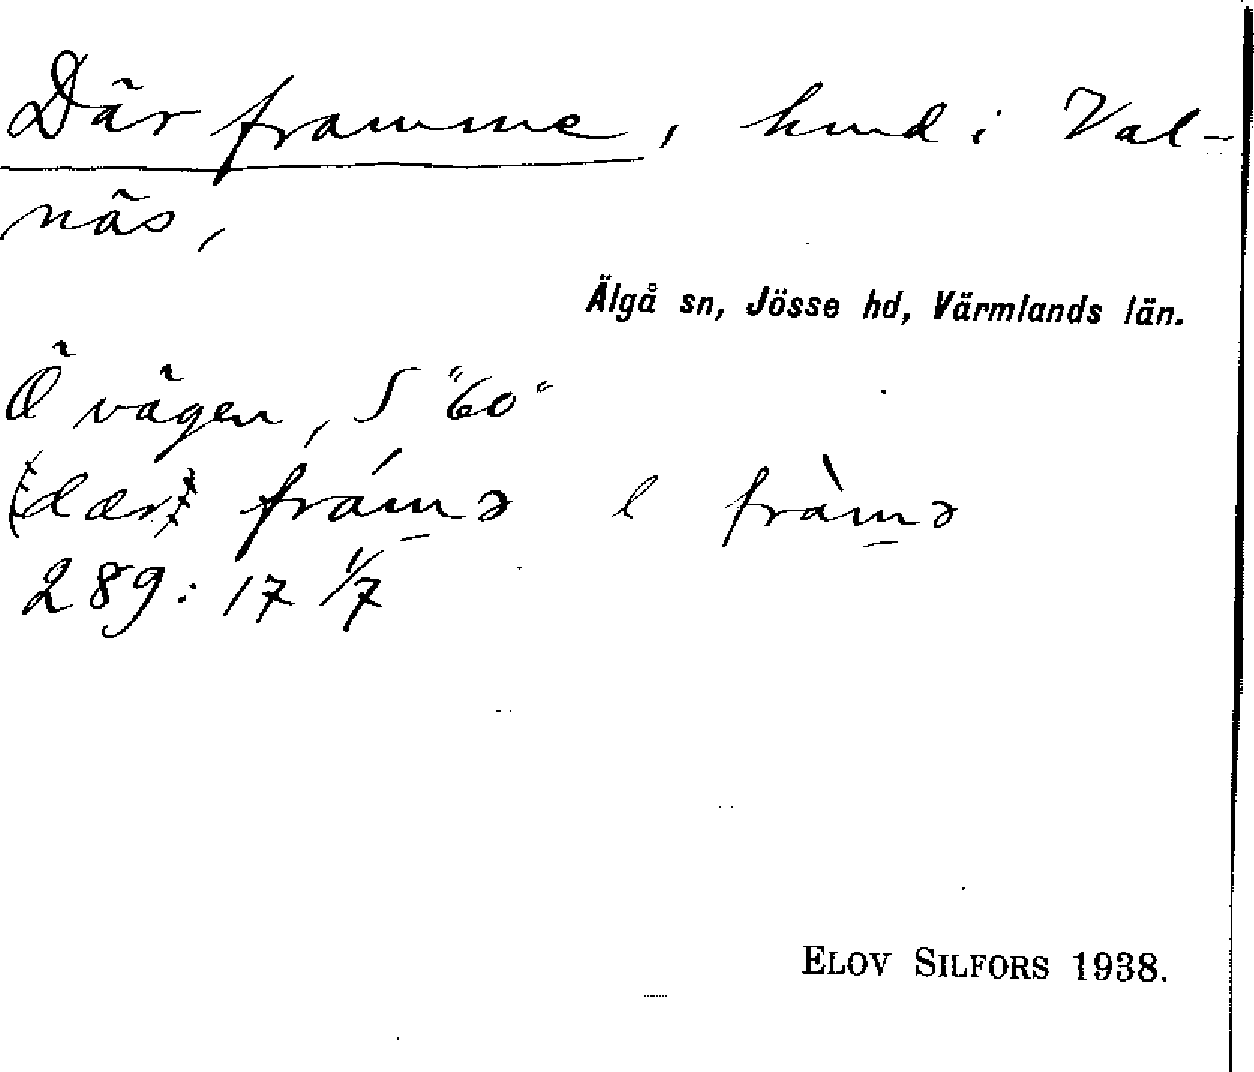 Där framme, hmd i Val-
näs,
Älgå sn, Jösse hd, Värmlands län.
Ö vägen, S "60"
(dær) frámə l fràmə
289: 17 1/7
ELOV SILFORS 1938.